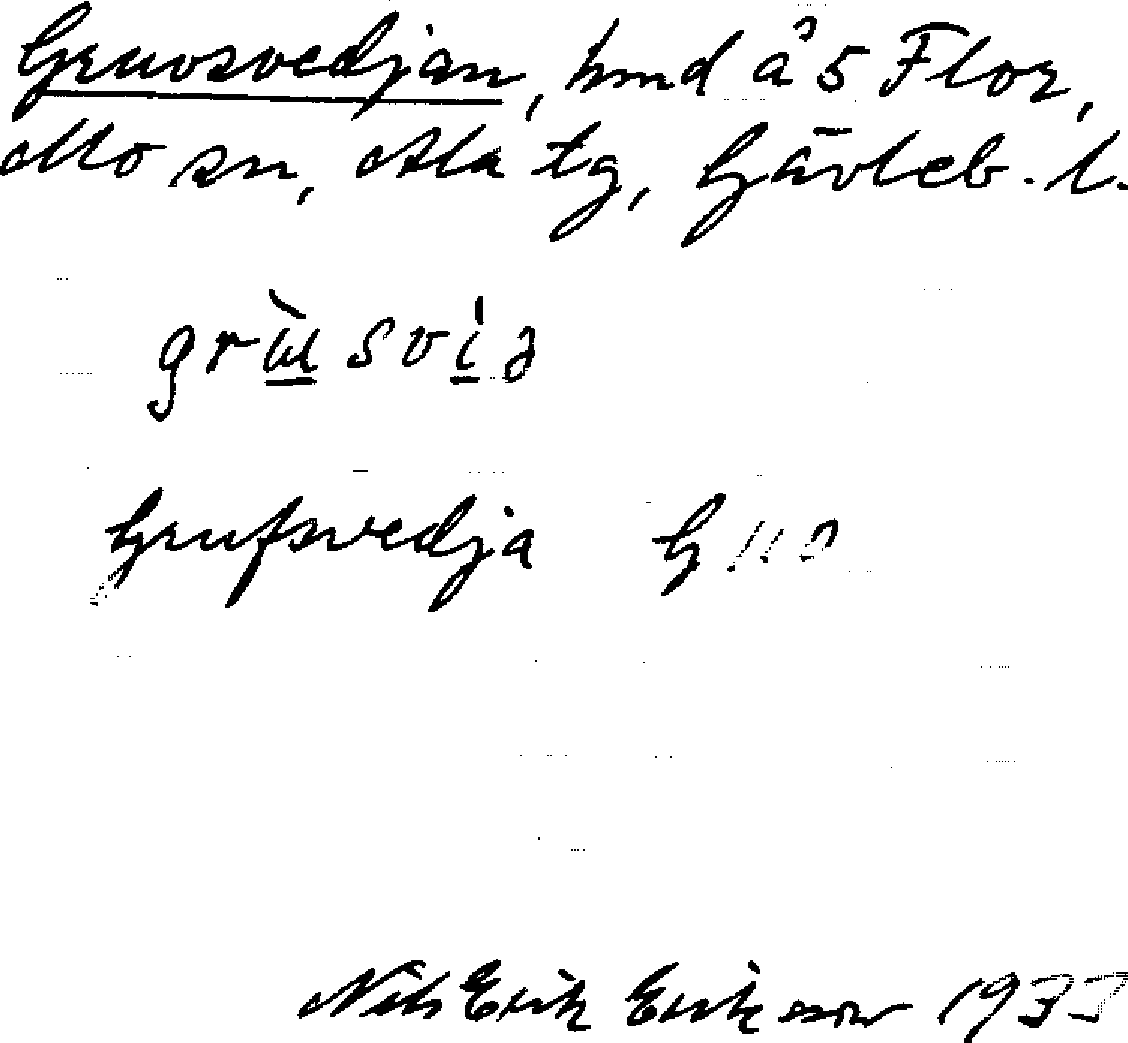 Gruvsvedjan, hmd å 5 Flor,
Mo sn, Ala tg, Gävleb. l.
Grufsvedja
Nils Erik Eriksson 1933